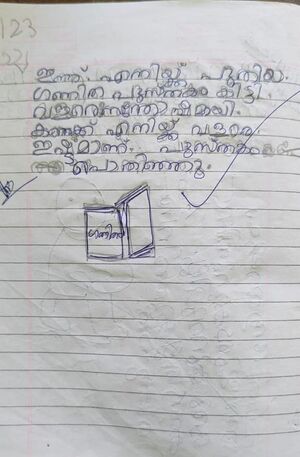 123
22)
ഇന്ന് എനിയ്ക്ക് പുതിയ
ഗണിത പുസ്തകം കിട്ടി.
വളരെസന്തോഷമായി.
കണക്ക് എനിയ്ക്ക് വളരെ
ഇഷ്ടമാണ്. പുസ്തകം
പൊതിഞ്ഞു.
ഗണിതം